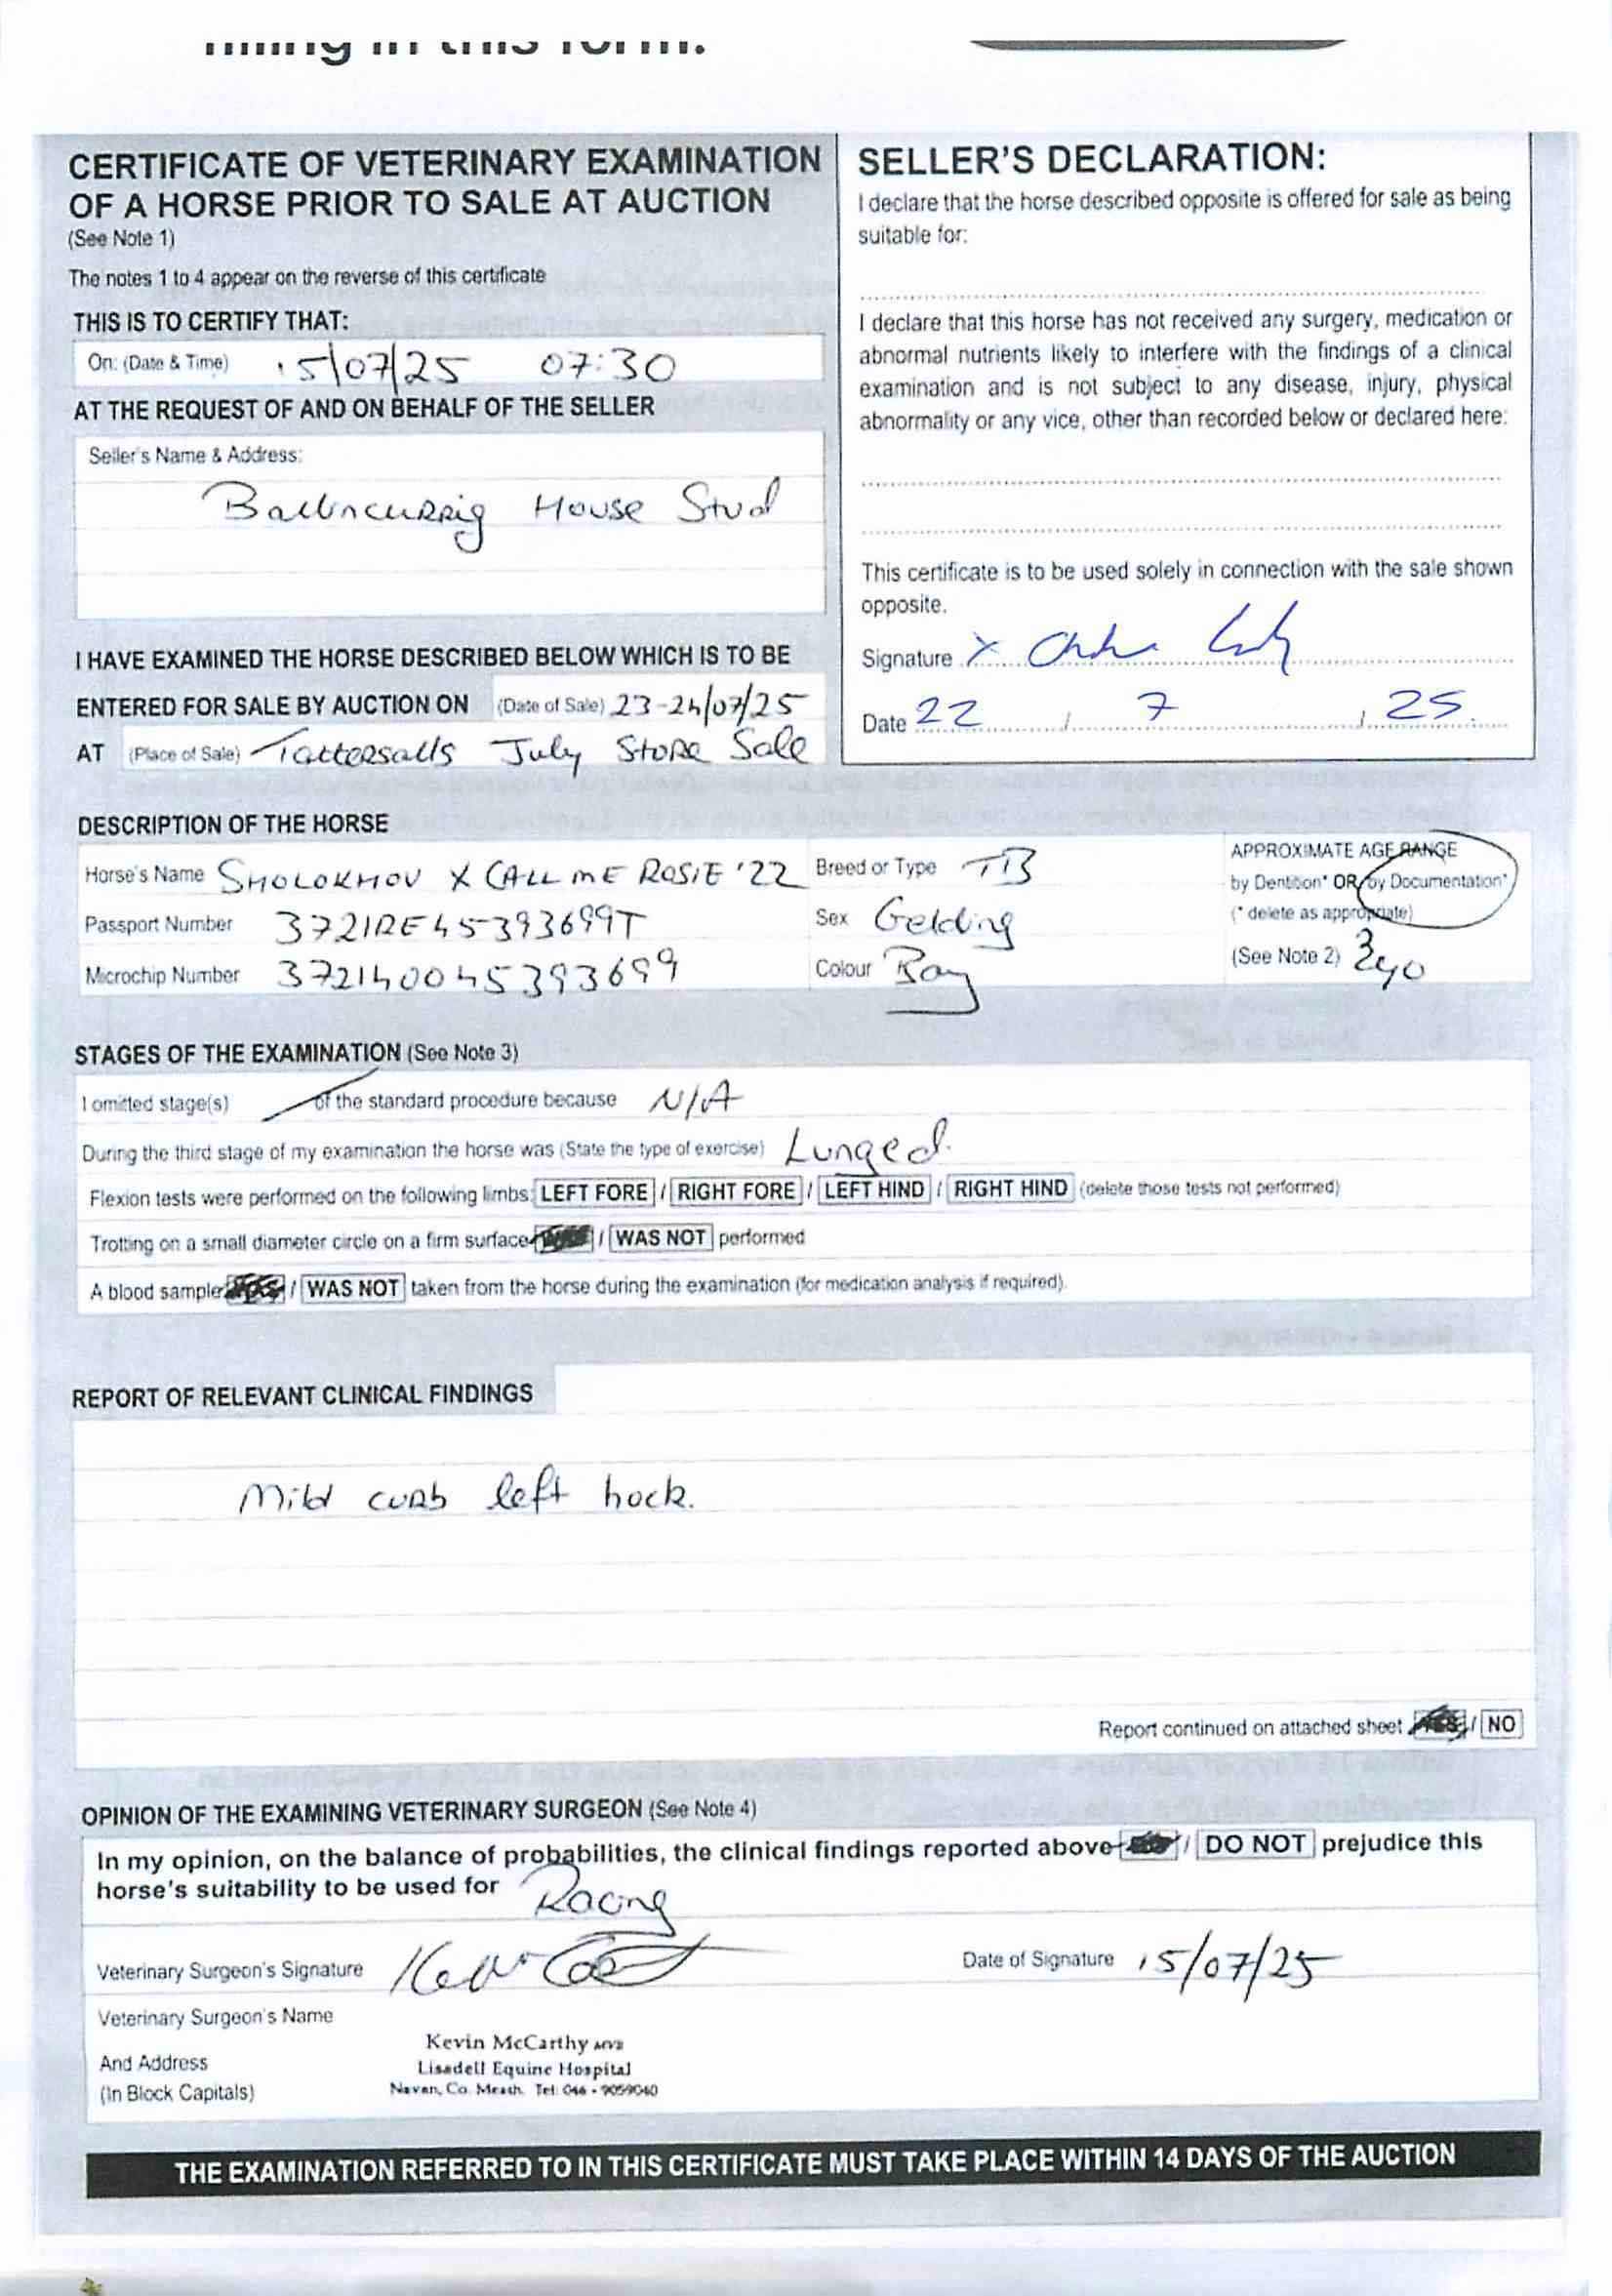 filling in this form.
CERTIFICATE OF VETERINARY EXAMINATION
OF A HORSE PRIOR TO SALE AT AUCTION
(See Note 1)
The notes 1 to 4 appear on the reverse of this certificate
THIS IS TO CERTIFY THAT:
On: (Date & Time) 15/07/25 07:30
AT THE REQUEST OF AND ON BEHALF OF THE SELLER
Seller's Name & Address:
Ballincurrig House Stud
I HAVE EXAMINED THE HORSE DESCRIBED BELOW WHICH IS TO BE
ENTERED FOR SALE BY AUCTION ON (Date of Sale) 23-24/07/25
AT (Place of Sale) Tattersalls July Store Sale
SELLER'S DECLARATION:
I declare that the horse described opposite is offered for sale as being
suitable for:
I declare that this horse has not received any surgery, medication or
abnormal nutrients likely to interfere with the findings of a clinical
examination and is not subject to any disease, injury, physical
abnormality or any vice, other than recorded below or declared here:
This certificate is to be used solely in connection with the sale shown
opposite.
Signature X
Date 22 / 7 / 25
DESCRIPTION OF THE HORSE
Horse's Name SHOLOKHOV X CALL ME ROSIE '22 Breed or Type TB
Passport Number 372IRE45393699T Sex Gelding
Microchip Number 372140045393699 Colour Bay
APPROXIMATE AGE RANGE
by Dentition* OR by Documentation*
(* delete as appropriate)
(See Note 2) 3yo
STAGES OF THE EXAMINATION (See Note 3)
I omitted stage(s) of the standard procedure because N/A
During the third stage of my examination the horse was (State the type of exercise) Lunged.
Flexion tests were performed on the following limbs: LEFT FORE / RIGHT FORE / LEFT HIND / RIGHT HIND (delete those tests not performed)
Trotting on a small diameter circle on a firm surface / WAS NOT performed
A blood sample / WAS NOT taken from the horse during the examination (for medication analysis if required).
REPORT OF RELEVANT CLINICAL FINDINGS
Mild curb left hock.
Report continued on attached sheet YES / NO
OPINION OF THE EXAMINING VETERINARY SURGEON (See Note 4)
In my opinion, on the balance of probabilities, the clinical findings reported above / DO NOT prejudice this
horse's suitability to be used for Racing
Veterinary Surgeon's Signature Date of Signature 15/07/25
Veterinary Surgeon's Name
And Address
(In Block Capitals)
Kevin McCarthy MVB
Lisadell Equine Hospital
Navan, Co. Meath. Tel: 046 - 9059040
THE EXAMINATION REFERRED TO IN THIS CERTIFICATE MUST TAKE PLACE WITHIN 14 DAYS OF THE AUCTION